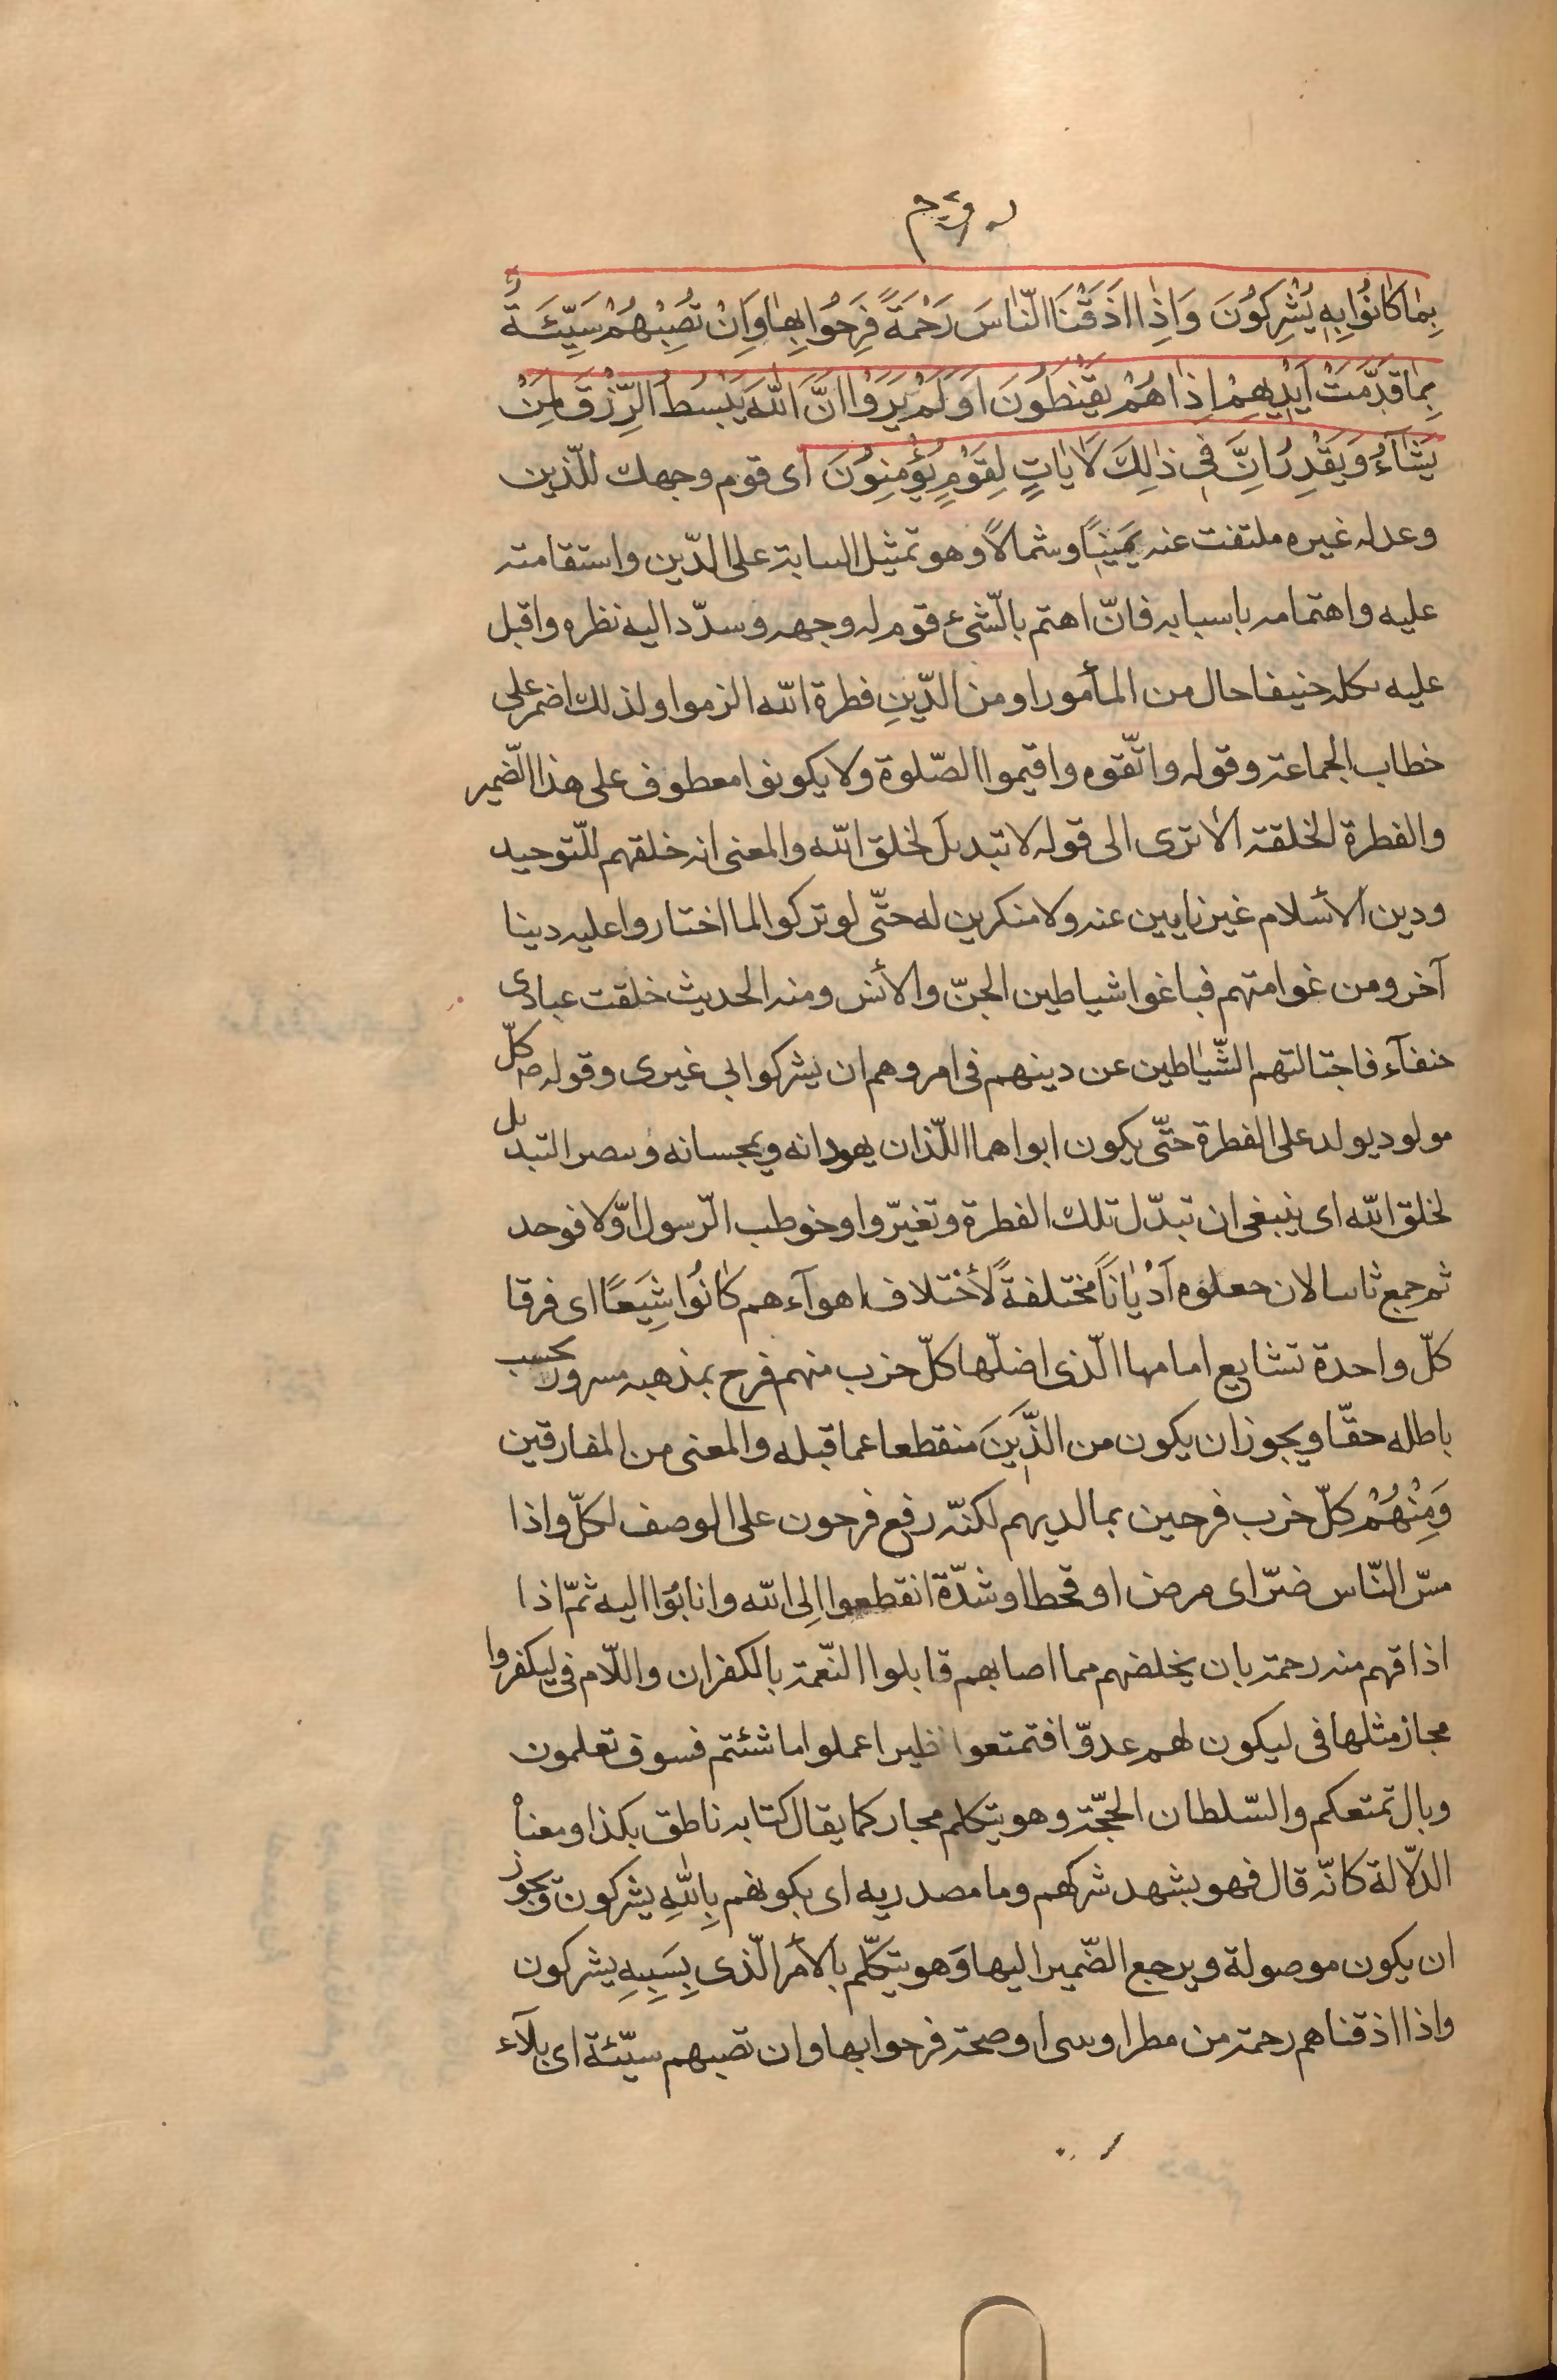 بِمٰا كٰانُوا بِهٖ يُشْرِكُونَ وَاِذٰا اَذَقْنَا النّٰاسَ رَحْمَةً فَرِحُوا بِهٰا وَاِنْ تُصِبْهُمْ سَيِّئَةٌ
بِمٰا قَدَّمَتْ اَيْدِيهِمْ اِذٰا هُمْ يَقْنِطُونَ اَوَلَمْ يَرَوْا اَنَّ اللّٰهَ يَبْسُطُ الرِّزْقَ لِمَنْ
يَشٰآءُ وَيَقْدِرُ اِنَّ فِي ذٰلِكَ لَاٰيٰاتٍ لِقَوْمٍ يُؤْمِنُونَ اى قوم وجهك للّذين
وعدله غيره ملتفت عنه يَمينًا وشمالًا وهو تمثيل السابة على الدّين واستقامته
عليه واهتمامه باسبابه فانّ اهتم بالشّئ قوم له وجهه وسدّد اليه نظره واقبل
عليه بكله حنيفا حال من المأمور او من الدّينِ فطرة اللّه الزموا ولذلك اضمر على
خطاب الجماعة وقوله واتّقوه واقيموا الصّلوة ولا يكونوا معطوف على هذا الضّمير
والفطرة الخلقة الا ترى الى قوله لا تبديل لخلق اللّه والمعنى انه خلقهم للتّوحيد
ودين الأسلام غير نايبين عنه ولا منكرين له حتّى لو تركوا لما اختاروا عليه دينا
آخر ومن غوا متهم فباغوا شياطين الجنّ والأنس ومنه الحديث خلقت عبادى
حنفآء فاجتالتهم الشّيٰاطين عن دينهم فى امروهم ان يشركوا بى غيرى وقوله ص كلّ
مولود يولد على الفطرة حتّى يكون ابواهما اللّذان يهودانه ويمجسانه التبديل
لخلق اللّه اى ينبغى ان تبدّل تلك الفطرة وتغيّروا وخوطب الرّسول اوّلا فوحد
ثم جمع لان جعلوه اَدْيٰانًا مختلفةً لأختلاف اهوآءهم كٰانُوا شِيَعًا اى فرقا
كلّ واحدة تشايع امامها الّذى اضلّها كلّ حزب منهم فرح بمذهبه مسرور بحسب
باطله حقّا ويجوز ان يكون من الذّينَ منقطعا عما قبله والمعنى من المفارقين
وَمِنْهُمْ كلّ خرب فرحين بما لديهم لكنّه رفع فرحون على الوصف لكلّ واذا
مسّ النّاس ضرّ اى مرض او قحط او شدّة انقطعوا اِلى اللّه وانابُوا اليه ثمّ اذا
اذاقهم منه رحمة بان يخلصهم مما اصابهم قابلوا النّعمة بالكفران واللّام فى ليكفروا
مجاز مثلها فى ليكون لهم عدوّا فتمتعوا نظير اعملوا ما شئتم فسوف تعلمون
وبال تمتعكم والسّلطان الحجّة وهو يتكلم مجاز كما يقال كتابه ناطق بكذا ومعناه
الدّلالة كانّه قال فهو يشهد شركهم وما مصدريه اى بكونهم بِاللّٰهِ يشركون ويجوز
ان يكون موصولة ويرجع الضّمير اليها وَهو يتكلّم بالأمر الّذى بِسَبِبِهِ يشركون
واذا اذقناهم رحمة من مطر او او صحة فرحوا بها وان تصبهم سيّئة اى بلآء